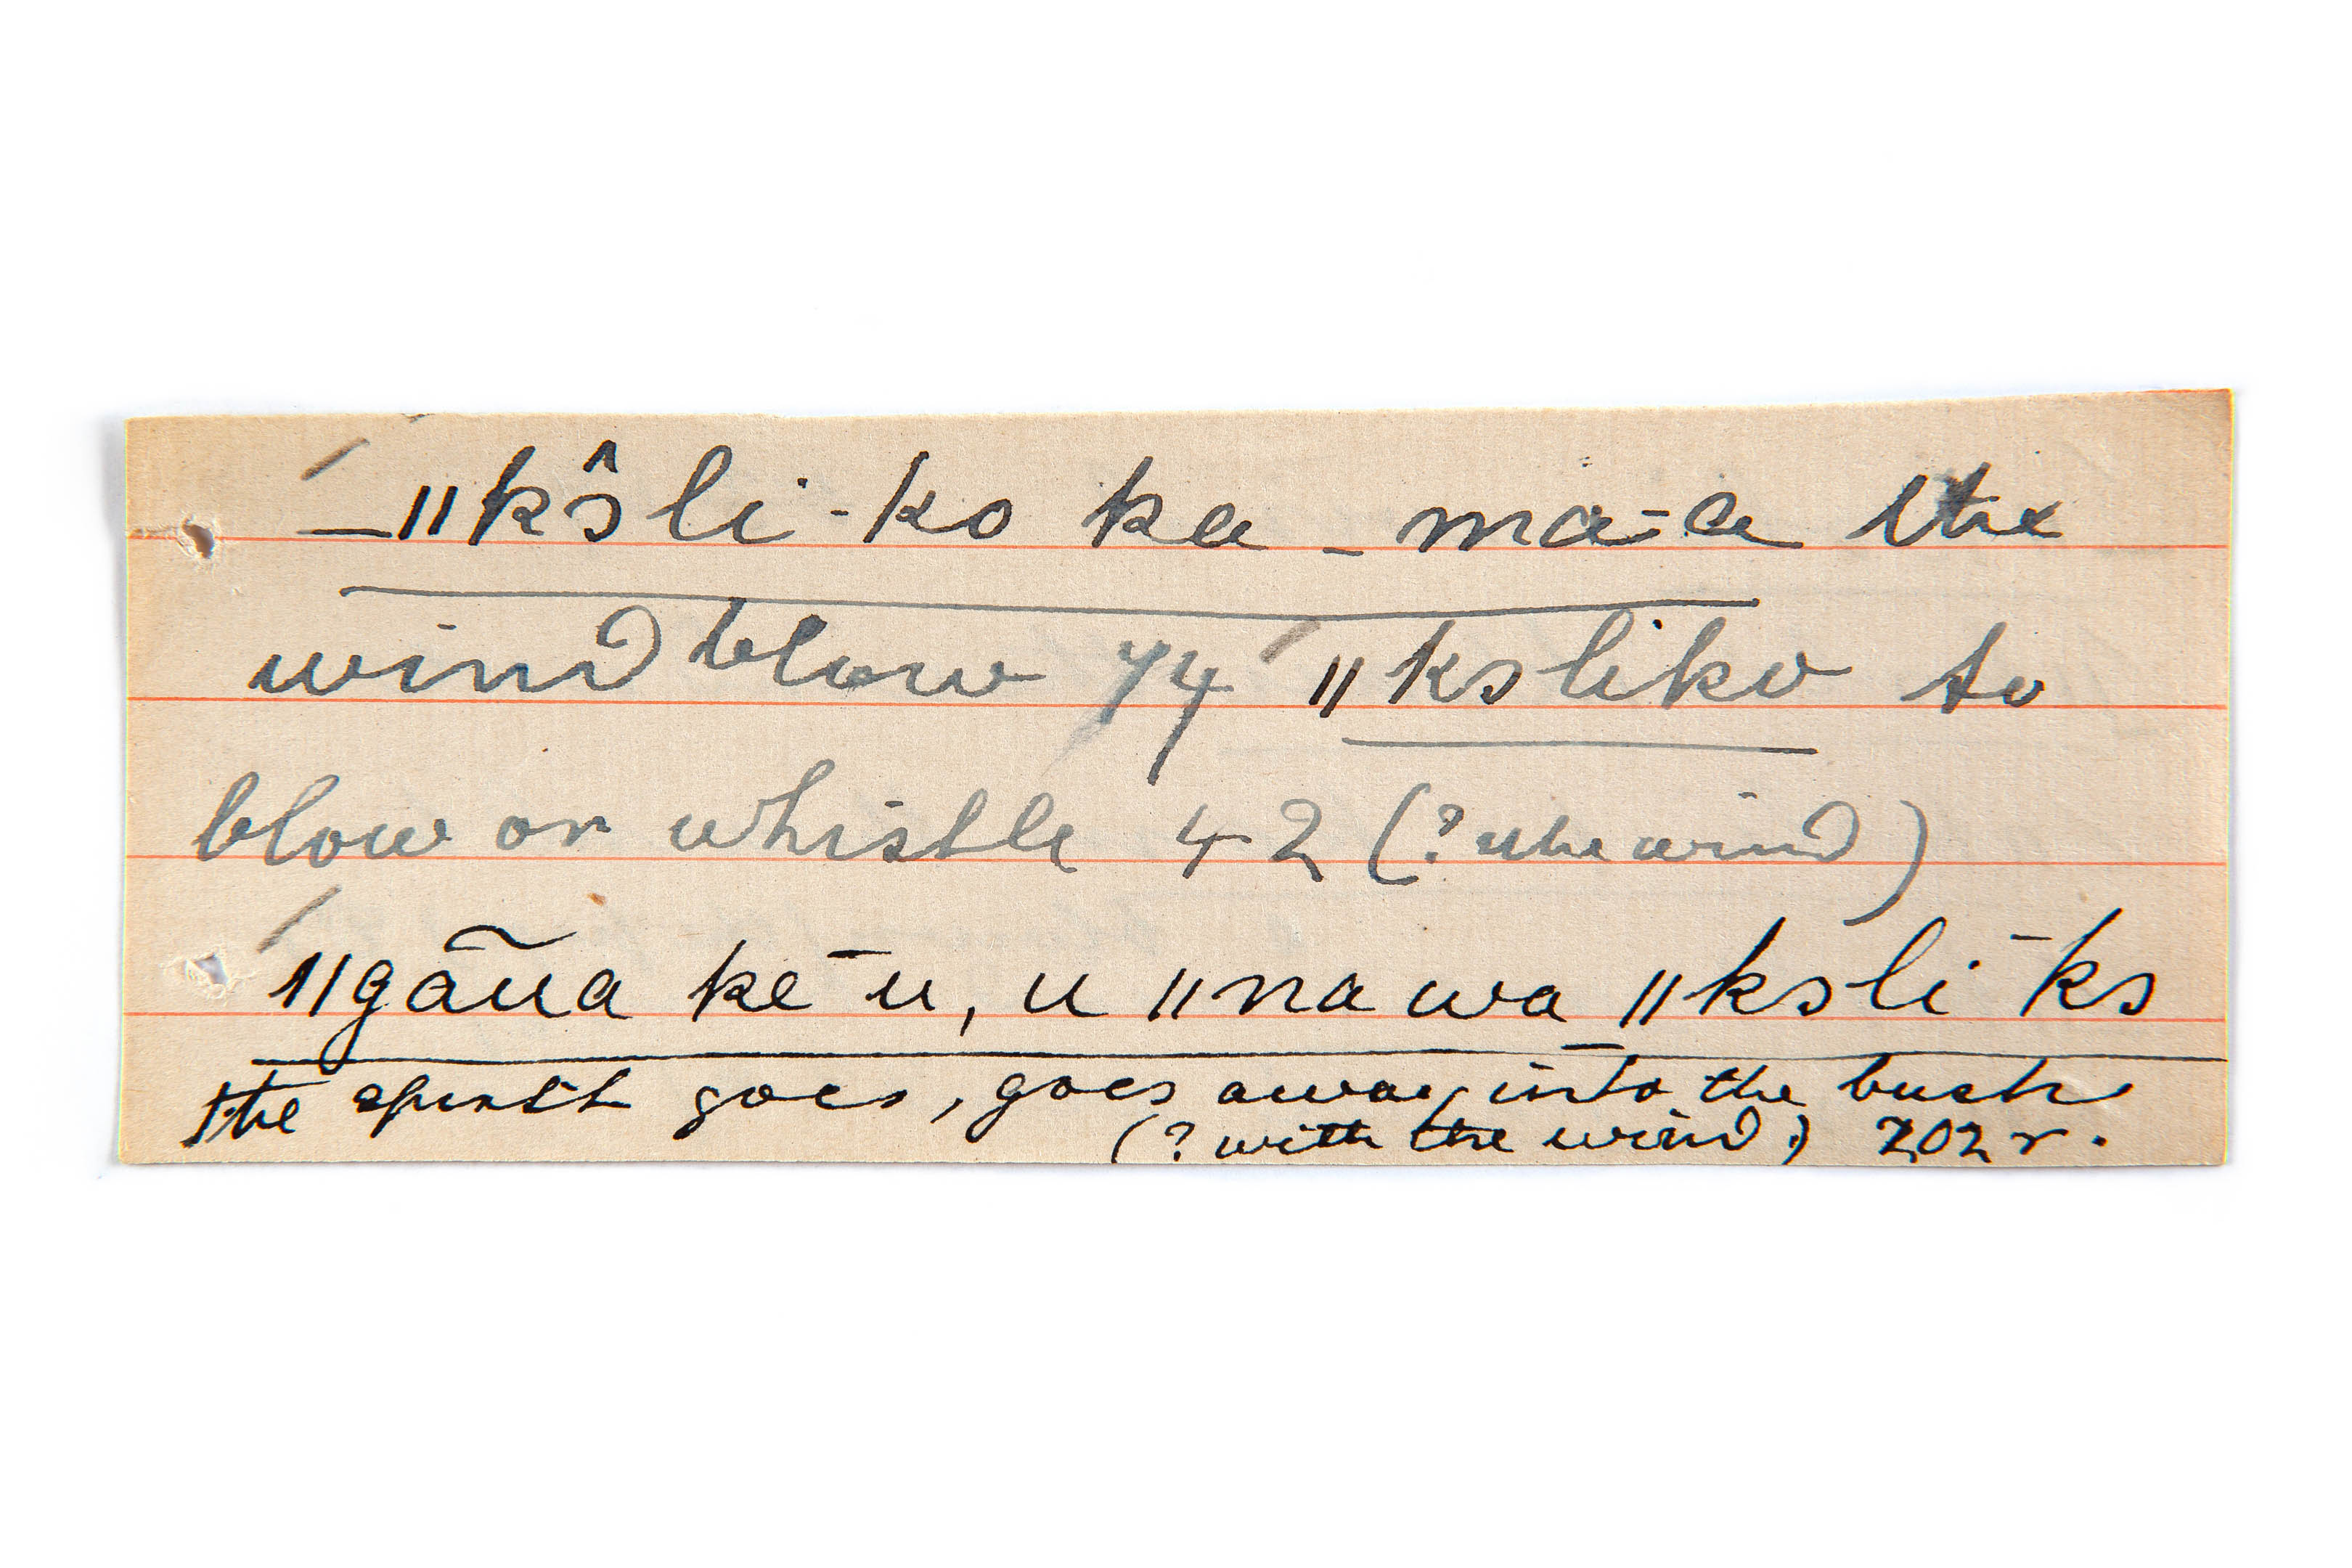 –ǁkɔ̂li-ko ka-ma-a the
wind blow 74 ǁkɔliko to
blow or whistle 42 (? the wind)
ǁgãũa ke-u, u ǁna wa ǁkɔli-kɔ
the spirit goes, goes away into the bush
(? with the wind.) 202 r.